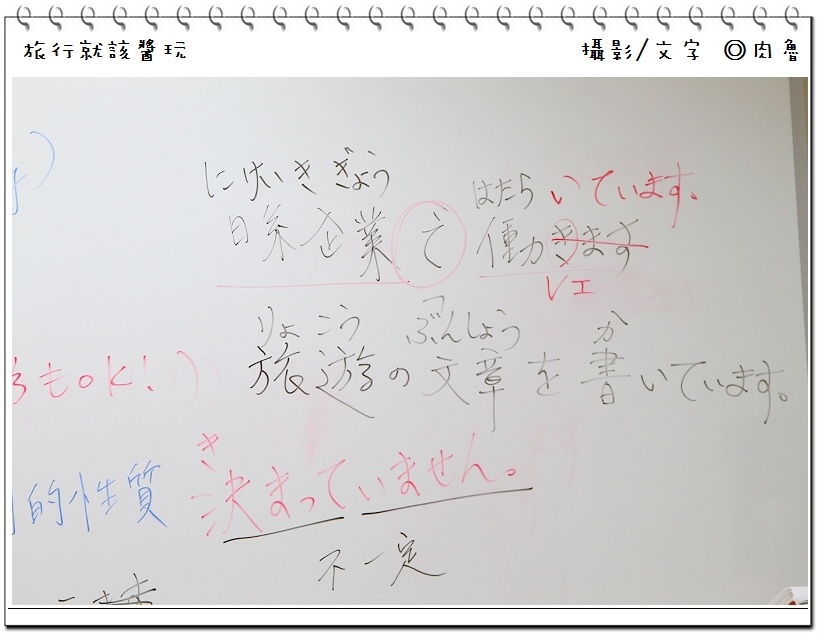 旅行就該醬玩
攝影/文字 ◎肉魯
にけいきぎょう はたらいています。
日系企業で働きます
Vエ
りょこう ぶんしょう か
もok!) 旅遊の文章を書いています。
き
的性質 決まっていません。
不一定